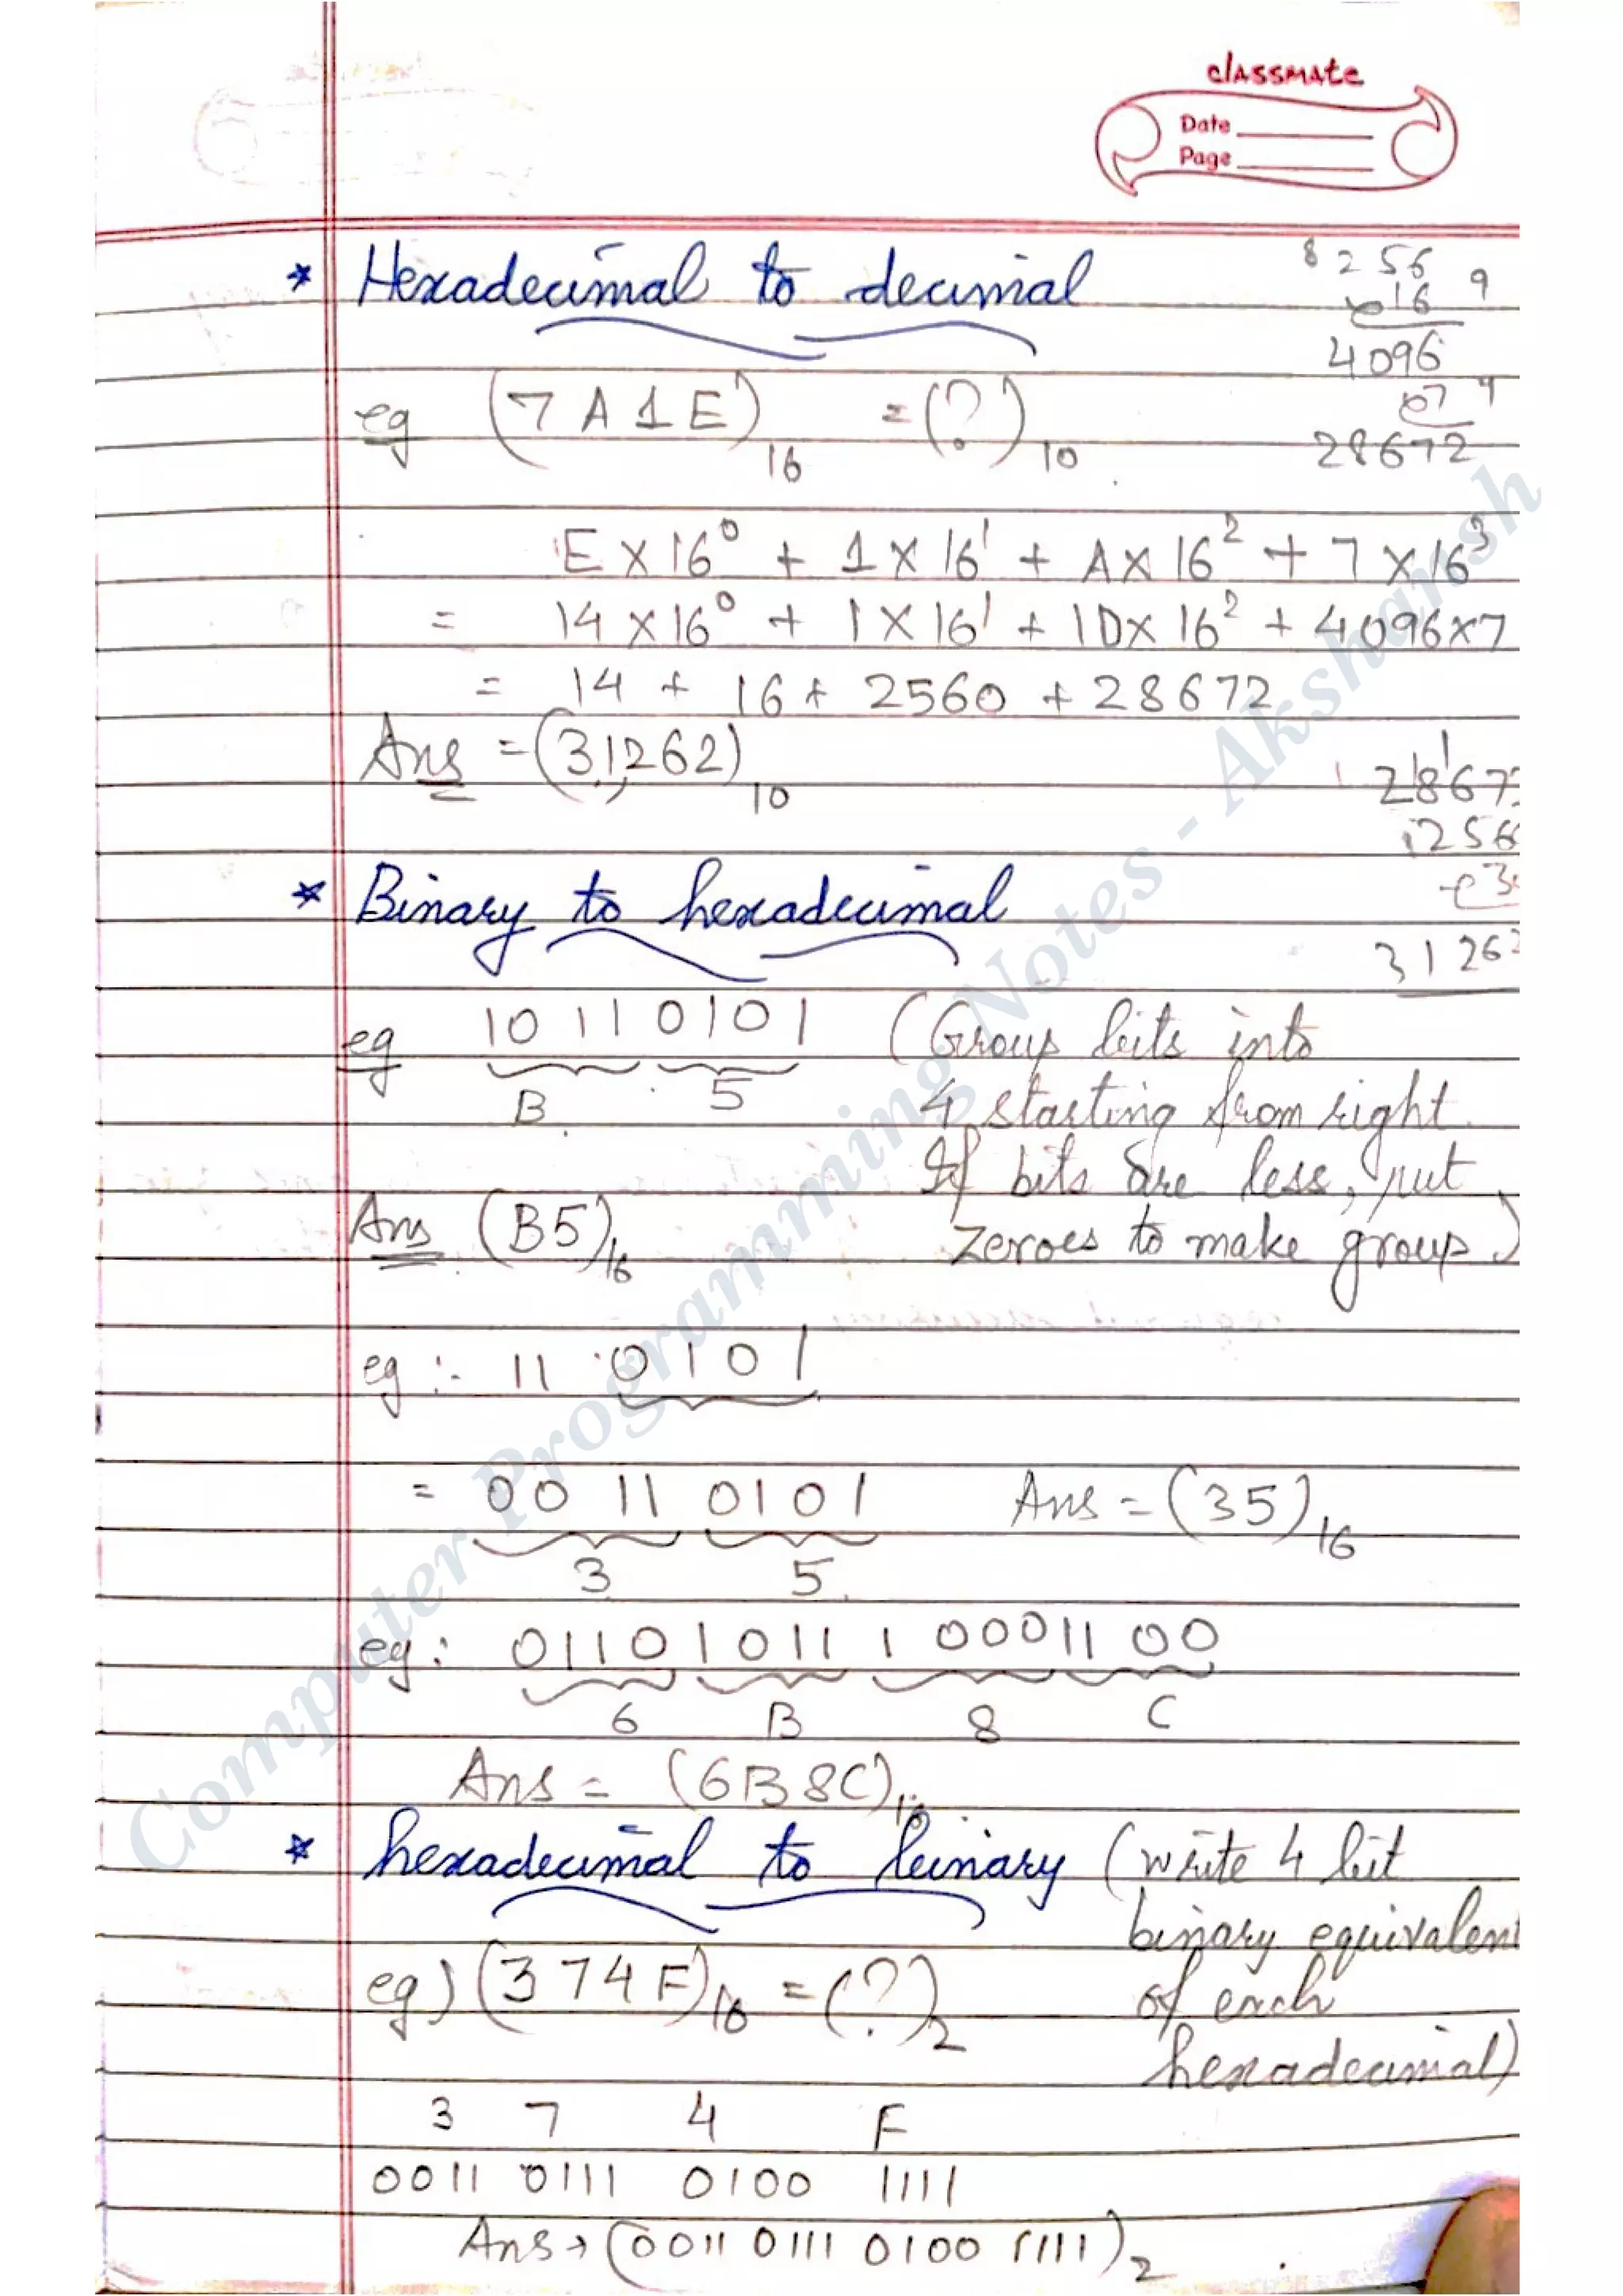 classmate
Date
Page
* Hexadecimal to decimal
8 256 9
16
4096
07 4
28672
eg (7 A 1 E)16 = (?)10
E × 16⁰ + 1 × 16¹ + A × 16² + 7 × 16³
= 14 × 16⁰ + 1 × 16¹ + 10 × 16² + 4096×7
= 14 + 16 + 2560 + 28672
Ans = (31,262)10
2867
256
3
3126
* Binary to hexadecimal
eg 10 11 0101 (Group bits into
B 5 4 starting from right.
If bits are less, put
Ans (B5)16 zeroes to make group)
eg :- 11 0101
= 00 11 0101 Ans = (35)16
3 5
eg : 0110 1011 1 000 11 00
6 B 8 C
Ans = (6B8C)16
* hexadecimal to binary (write 4 bit
binary equivalent
eg) (374F)16 = (?)2 of each
hexadecimal)
3 7 4 F
0011 0111 0100 1111
Ans → (0011 0111 0100 1111)2
Computer Programming Notes - Akshansh